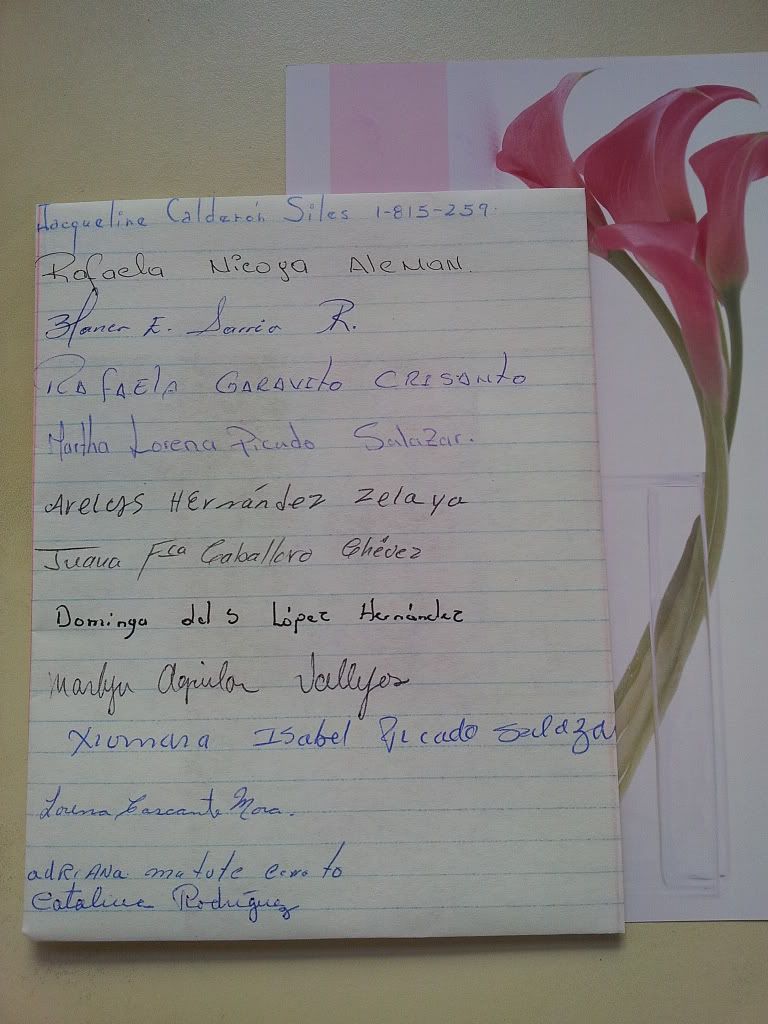 Jacqueline Calderón Siles 1-815-259.
Rafaela Nicoya Aleman.
Blanca E. Sarria R.
Rafaela Garavito Crisanto
Martha Lorena Picado Salazar.
Arelys Hernández Zelaya
Juana Fca Caballero Chévez
Dominga del S López Hernández
Marlyn Aguilar Vallejos
Xiomara Isabel Picado Salazar
Lorena Cascante Mora.
adriana matute
Catalina Rodríguez